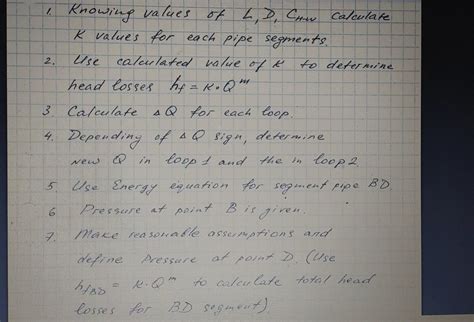 1. Knowing values of L, D, CHW calculate
K values for each pipe segments.
2. Use calculated value of K to determine
head losses hf = K·Q^m
3. Calculate ΔQ for each loop.
4. Depending of ΔQ sign, determine
new Q in loop 1 and the in loop 2.
5. Use Energy equation for segment pipe BD.
6 Pressure at point B is given.
7. Make reasonable assumptions and
define Pressure at point D. (Use
hfBD = K·Q^m to calculate total head
losses for BD segment).